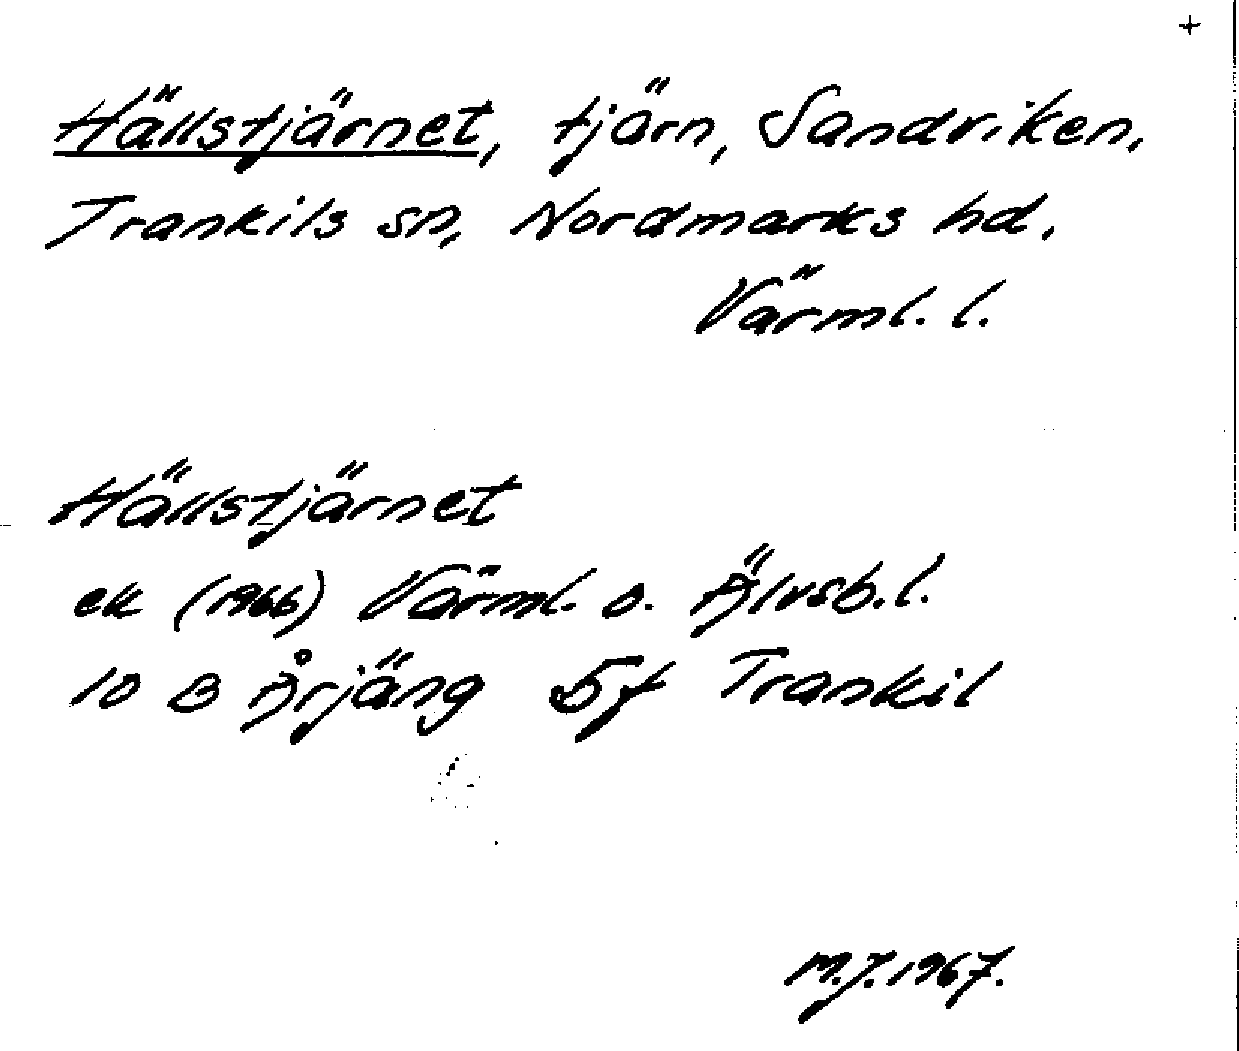 +
Hällstjärnet, tjärn, Sandviken,
Trankils sn, Nordmarks hd,
Värml. l.
Hällstjärnet
ek (1966) Värml. o. Älvsb. l.
10 B Årjäng 5f Trankil
M.J. 1967.